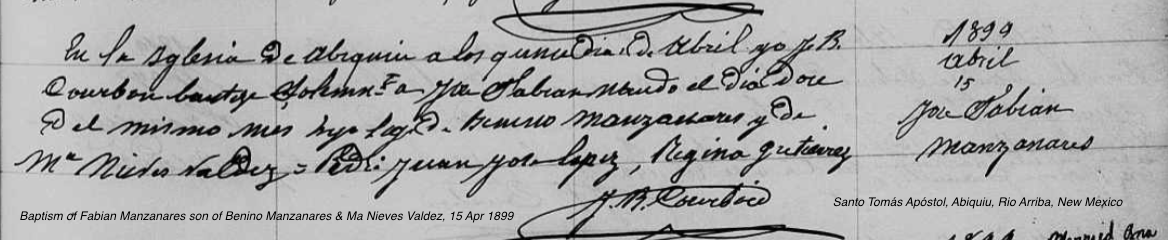 En la Iglesia de Abiquiu a los quince dias de Abril yo J. B.
Courbon bautize Solemnte a Jose Fabian nacido el dia doce
del mismo mes hijo leg. de Benino Manzanares y de
Ma Nieves Valdez = Padr: Juan Jose Lopez, Regina Gutierrez
J. B. Courbon
1899
Abril
15
Jose Fabian
Manzanares
Baptism of Fabian Manzanares son of Benino Manzanares & Ma Nieves Valdez, 15 Apr 1899
Santo Tomás Apóstol, Abiquiu, Rio Arriba, New Mexico
1899